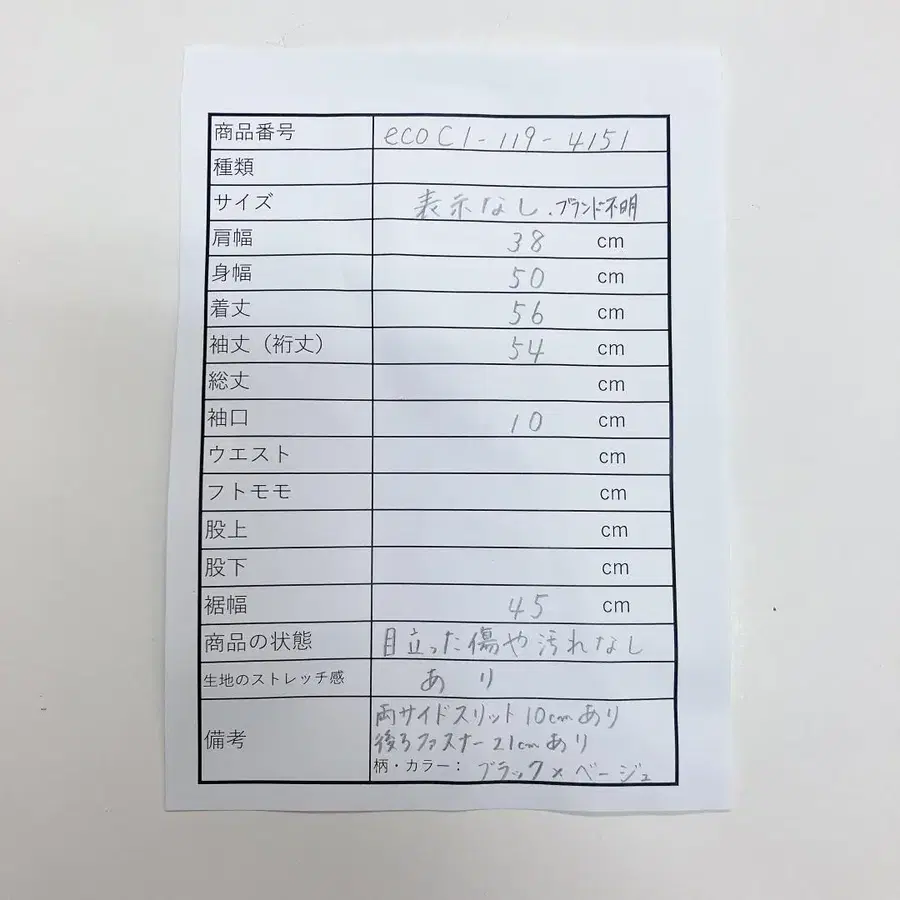 商品番号 ecoC1-119-4151
種類
サイズ 表示なし.ブランド不明
肩幅 38 cm
身幅 50 cm
着丈 56 cm
袖丈（裄丈） 54 cm
総丈 cm
袖口 10 cm
ウエスト cm
フトモモ cm
股上 cm
股下 cm
裾幅 45 cm
商品の状態 目立った傷や汚れなし
生地のストレッチ感 あり
備考 両サイドスリット10cmあり
後ろファスナー21cmあり
柄・カラー： ブラック×ベージュ